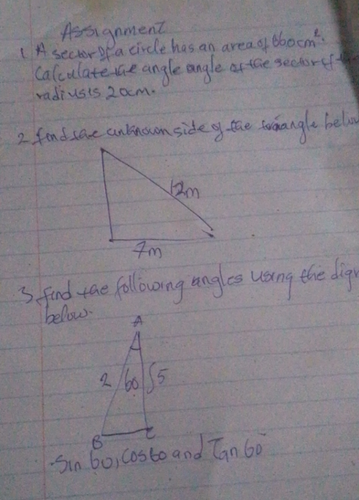 Assignment
1. A sector of a circle has an area of 660cm².
Calculate the angle angle of the sector if the
radius is 20cm.
2. find the unknown side of the triangle below
12m
7m
3. find the following angles using the
below.
A
2 60 √5
B C
Sin 60, cos 60 and Tan 60